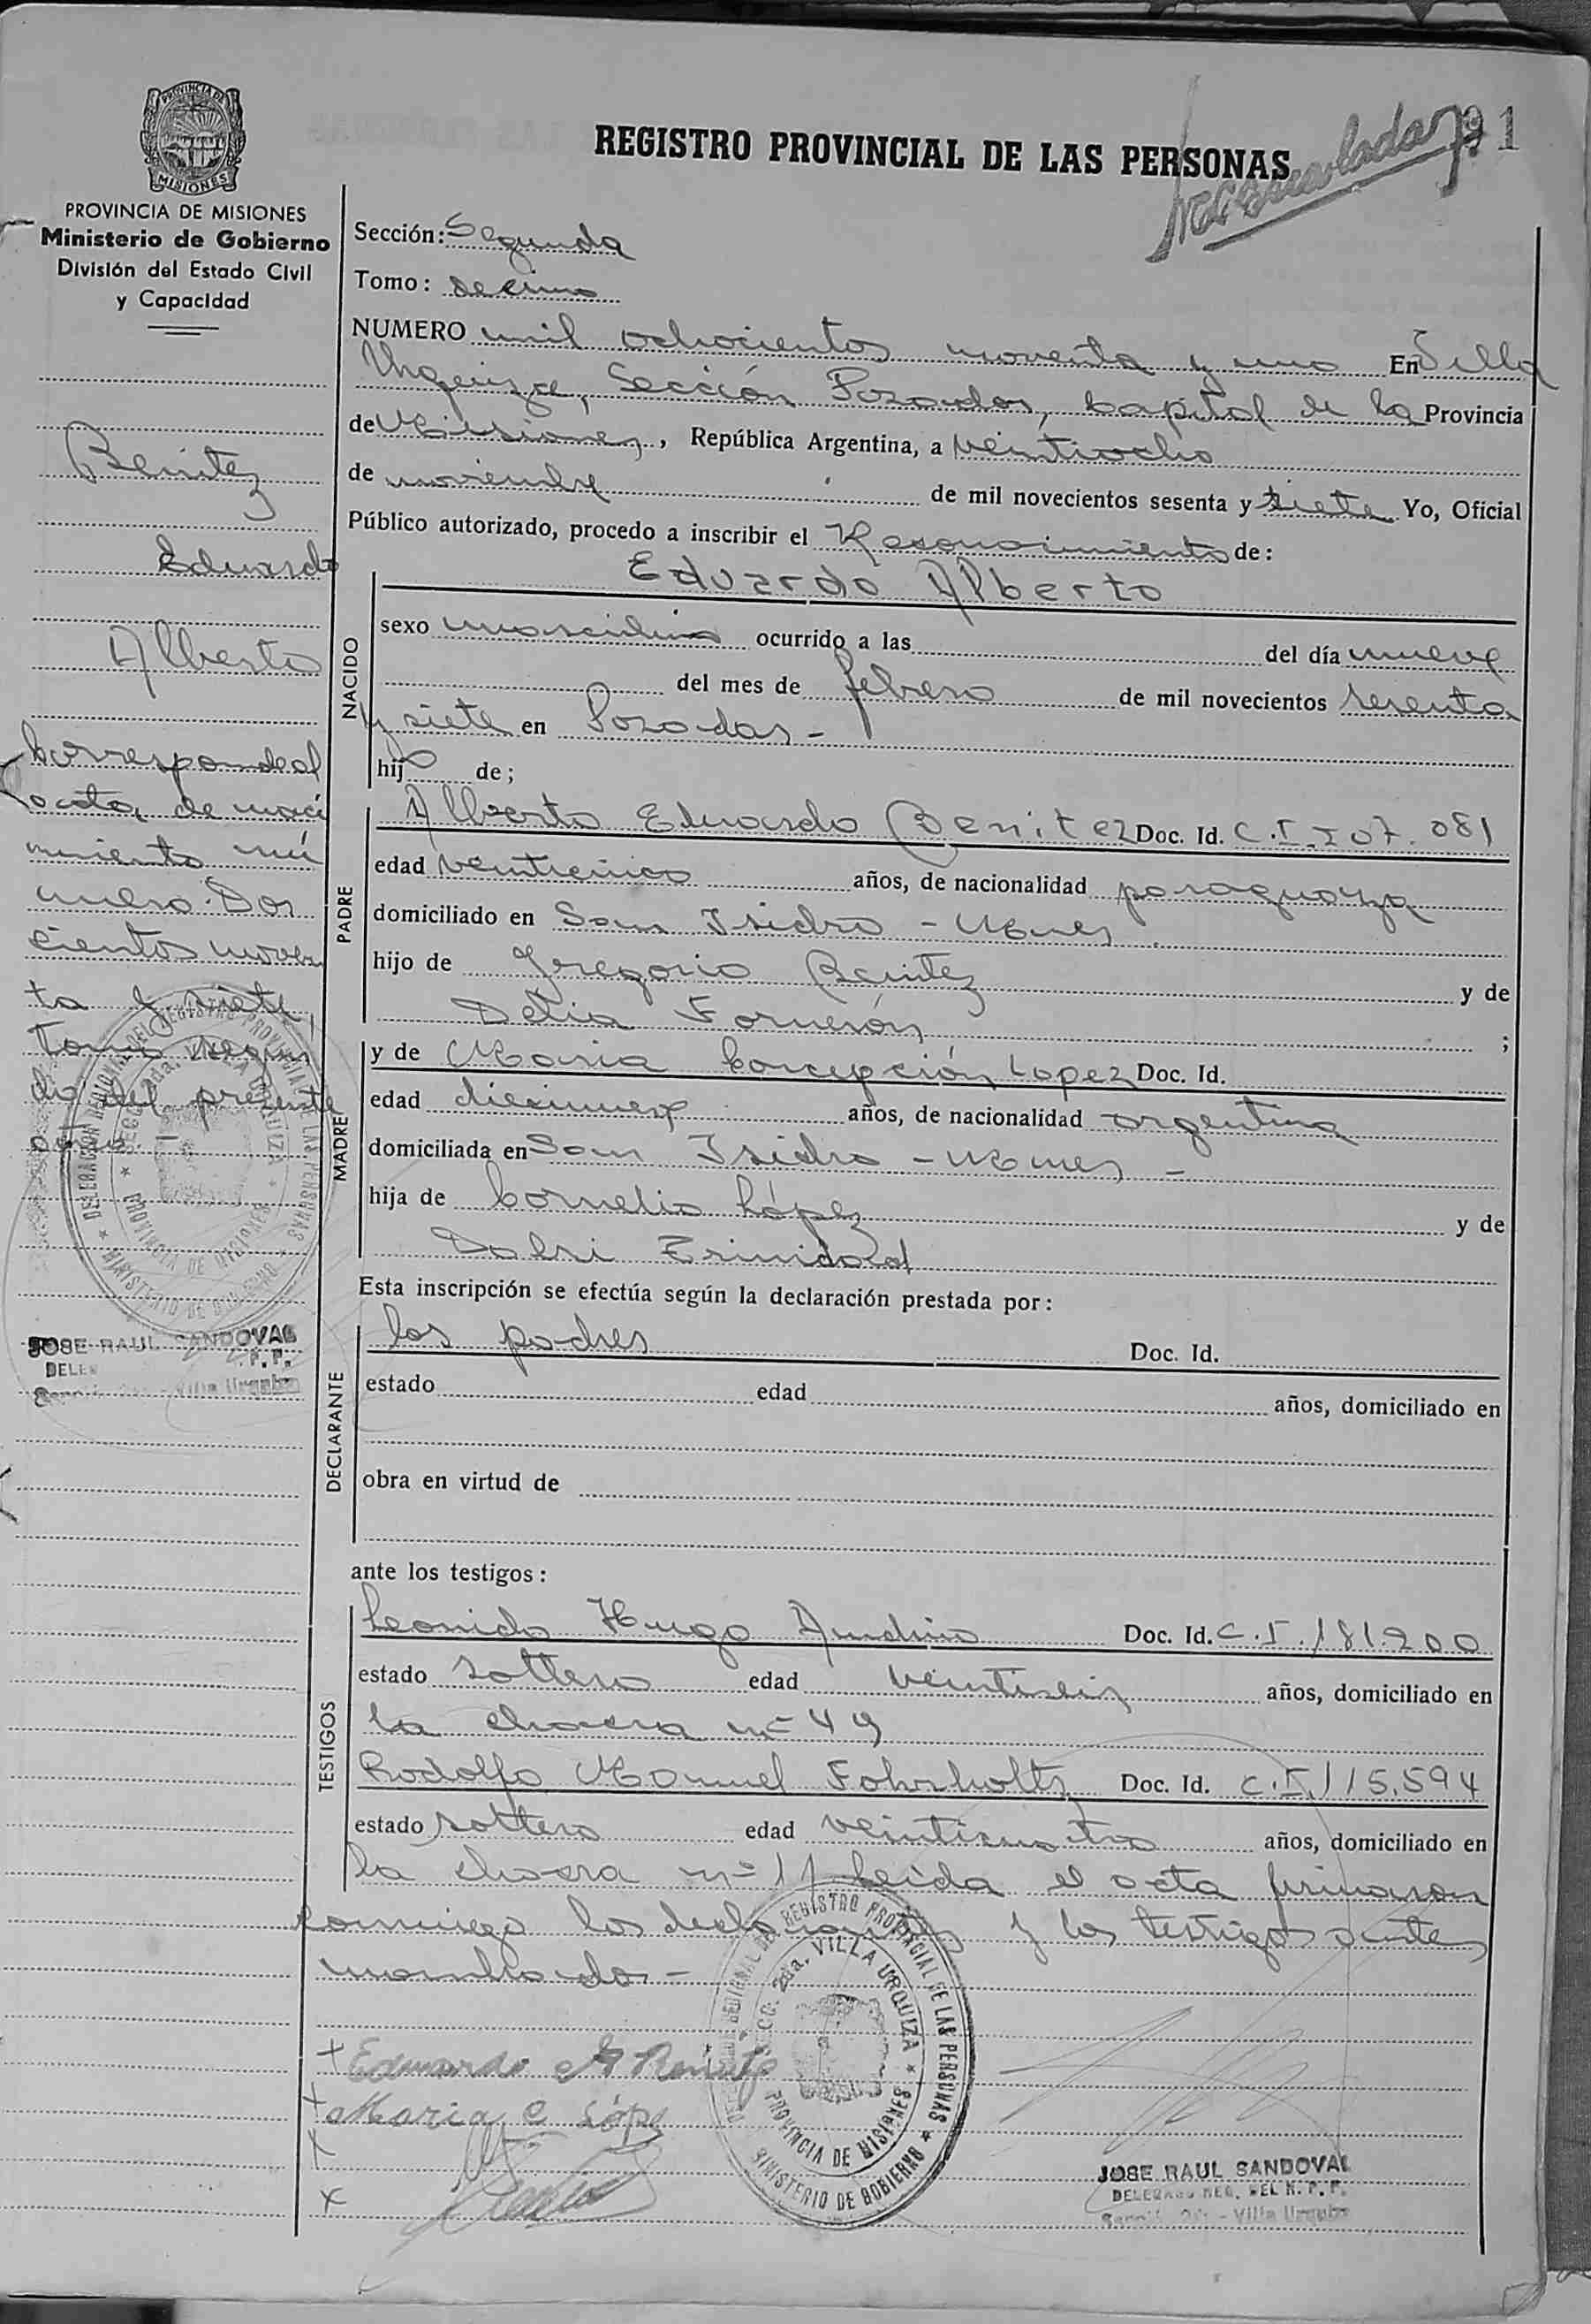 REGISTRO PROVINCIAL DE LAS PERSONAS
91
PROVINCIA DE MISIONES
Ministerio de Gobierno
División del Estado Civil
y Capacidad
Benitez
Eduardo
Alberto
Corresponde al
acta de naci
miento nú
mero Dos
cientos noven
ta y siete,
Tomo segun
do del presente
año.
JOSE RAUL SANDOVAL
Sección: Segunda
Tomo: decimo
NUMERO mil ochocientos noventa y uno En Villa
Urquiza, Sección Posadas, Capital de la Provincia
de Misiones, República Argentina, a veintiocho
de noviembre de mil novecientos sesenta y siete Yo, Oficial
Público autorizado, procedo a inscribir el Reconocimiento de:
Eduardo Alberto
NACIDO
sexo masculino ocurrido a las del día nueve
del mes de febrero de mil novecientos sesenta
y siete en Posadas-
hijo de;
PADRE
Alberto Eduardo Benitez Doc. Id. C.I. 207.081
edad veinticinco años, de nacionalidad paraguaya
domiciliado en San Isidro - Mnes
hijo de Gregorio Benitez y de
Delia ;
MADRE
y de Maria Concepción Lopez Doc. Id.
edad diecinueve años, de nacionalidad argentina
domiciliada en San Isidro - Mnes -
hija de Cornelio López y de
Trinidad
Esta inscripción se efectúa según la declaración prestada por:
DECLARANTE
los padres Doc. Id.
estado edad años, domiciliado en
obra en virtud de
ante los testigos:
TESTIGOS
Leonido Hugo Doc. Id. C.I. 181.200
estado soltero edad veintiseis años, domiciliado en
la chacra nº 49
Rodolfo Manuel Doc. Id. C.I. 115.594
estado soltero edad veinticuatro años, domiciliado en
la chacra nº 11 Leida el acta firmaron
conmigo los declarantes y los testigos antes
nombrados-
DELEGACION REGIONAL DEL REGISTRO PROVINCIAL DE LAS PERSONAS
SECC. 2da. VILLA URQUIZA
PROVINCIA DE MISIONES
MINISTERIO DE GOBIERNO
Eduardo A Benitez
Maria C López
JOSE RAUL SANDOVAL